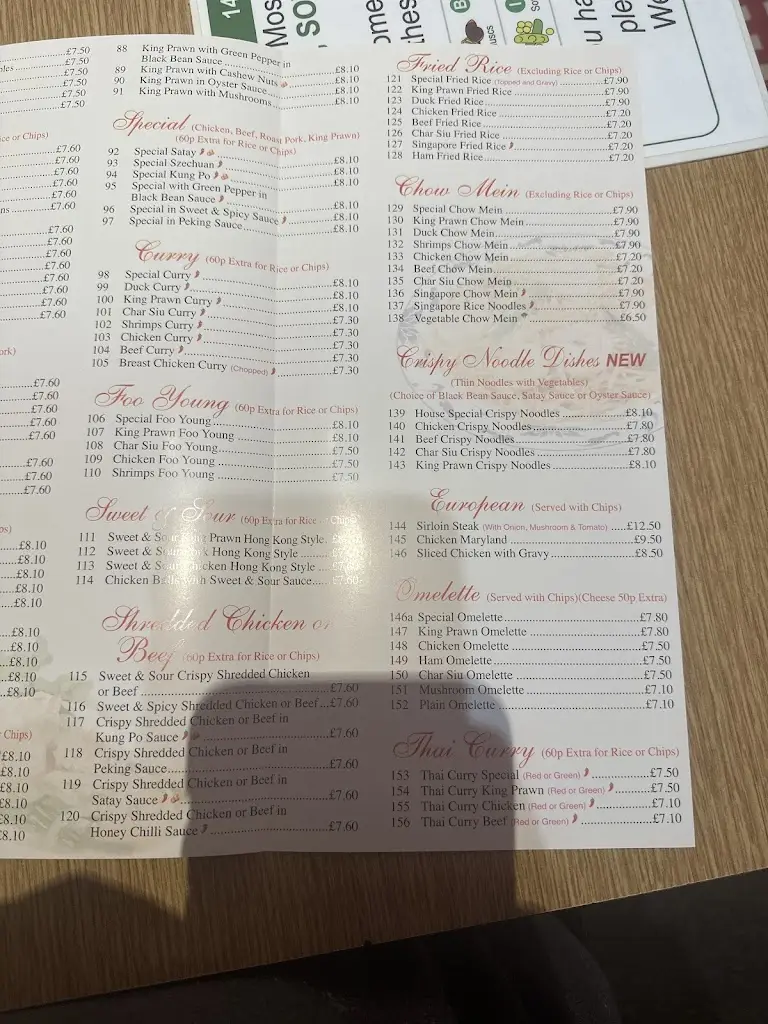 14
Mos
, so
ome
thes
B
I
uscs
So
u ha
plea
We
£7.50
bles £7.50
£7.50
£7.50
£7.50
ice or Chips)
£7.60
£7.60
£7.60
£7.60
£7.60
ns £7.60
£7.60
£7.60
£7.60
£7.60
£7.60
£7.60
£7.60
£7.60
ork)
£7.60
£7.60
£7.60
£7.60
£7.60
£7.60
£7.60
£7.60
ps)
£8.10
£8.10
£8.10
£8.10
£8.10
£8.10
£8.10
£8.10
£8.10
£8.10
r Chips)
£8.10
£8.10
£8.10
£8.10
£8.10
£8.10
88 King Prawn with Green Pepper in
Black Bean Sauce £8.10
89 King Prawn with Cashew Nuts £8.10
90 King Prawn in Oyster Sauce £8.10
91 King Prawn with Mushrooms £8.10
Special (Chicken, Beef, Roast Pork, King Prawn)
(60p Extra for Rice or Chips)
92 Special Satay £8.10
93 Special Szechuan £8.10
94 Special Kung Po £8.10
95 Special with Green Pepper in
Black Bean Sauce £8.10
96 Special in Sweet & Spicy Sauce £8.10
97 Special in Peking Sauce £8.10
Curry (60p Extra for Rice or Chips)
98 Special Curry £8.10
99 Duck Curry £8.10
100 King Prawn Curry £8.10
101 Char Siu Curry £7.30
102 Shrimps Curry £7.30
103 Chicken Curry £7.30
104 Beef Curry £7.30
105 Breast Chicken Curry (Chopped) £7.30
Foo Young (60p Extra for Rice or Chips)
106 Special Foo Young £8.10
107 King Prawn Foo Young £8.10
108 Char Siu Foo Young £7.50
109 Chicken Foo Young £7.50
110 Shrimps Foo Young £7.50
Sweet & Sour (60p Extra for Rice or Chips)
111 Sweet & Sour King Prawn Hong Kong Style
112 Sweet & Sour Hong Kong Style
113 Sweet & Sour Chicken Hong Kong Style
114 Chicken Balls with Sweet & Sour Sauce £7.60
Shredded Chicken or
Beef (60p Extra for Rice or Chips)
115 Sweet & Sour Crispy Shredded Chicken
or Beef £7.60
116 Sweet & Spicy Shredded Chicken or Beef £7.60
117 Crispy Shredded Chicken or Beef in
Kung Po Sauce £7.60
118 Crispy Shredded Chicken or Beef in
Peking Sauce £7.60
119 Crispy Shredded Chicken or Beef in
Satay Sauce £7.60
120 Crispy Shredded Chicken or Beef in
Honey Chilli Sauce £7.60
Fried Rice (Excluding Rice or Chips)
121 Special Fried Rice (Topped and Gravy) £7.90
122 King Prawn Fried Rice £7.90
123 Duck Fried Rice £7.90
124 Chicken Fried Rice £7.20
125 Beef Fried Rice £7.20
126 Char Siu Fried Rice £7.20
127 Singapore Fried Rice £7.20
128 Ham Fried Rice £7.20
Chow Mein (Excluding Rice or Chips)
129 Special Chow Mein £7.90
130 King Prawn Chow Mein £7.90
131 Duck Chow Mein £7.90
132 Shrimps Chow Mein £7.90
133 Chicken Chow Mein £7.20
134 Beef Chow Mein £7.20
135 Char Siu Chow Mein £7.20
136 Singapore Chow Mein £7.90
137 Singapore Rice Noodles £7.90
138 Vegetable Chow Mein £6.50
Crispy Noodle Dishes NEW
(Thin Noodles with Vegetables)
(Choice of Black Bean Sauce, Satay Sauce or Oyster Sauce)
139 House Special Crispy Noodles £8.10
140 Chicken Crispy Noodles £7.80
141 Beef Crispy Noodles £7.80
142 Char Siu Crispy Noodles £7.80
143 King Prawn Crispy Noodles £8.10
European (Served with Chips)
144 Sirloin Steak (With Onion, Mushroom & Tomato) £12.50
145 Chicken Maryland £9.50
146 Sliced Chicken with Gravy £8.50
Omelette (Served with Chips)(Cheese 50p Extra)
146a Special Omelette £7.80
147 King Prawn Omelette £7.80
148 Chicken Omelette £7.50
149 Ham Omelette £7.50
150 Char Siu Omelette £7.50
151 Mushroom Omelette £7.10
152 Plain Omelette £7.10
Thai Curry (60p Extra for Rice or Chips)
153 Thai Curry Special (Red or Green) £7.50
154 Thai Curry King Prawn (Red or Green) £7.50
155 Thai Curry Chicken (Red or Green) £7.10
156 Thai Curry Beef (Red or Green) £7.10